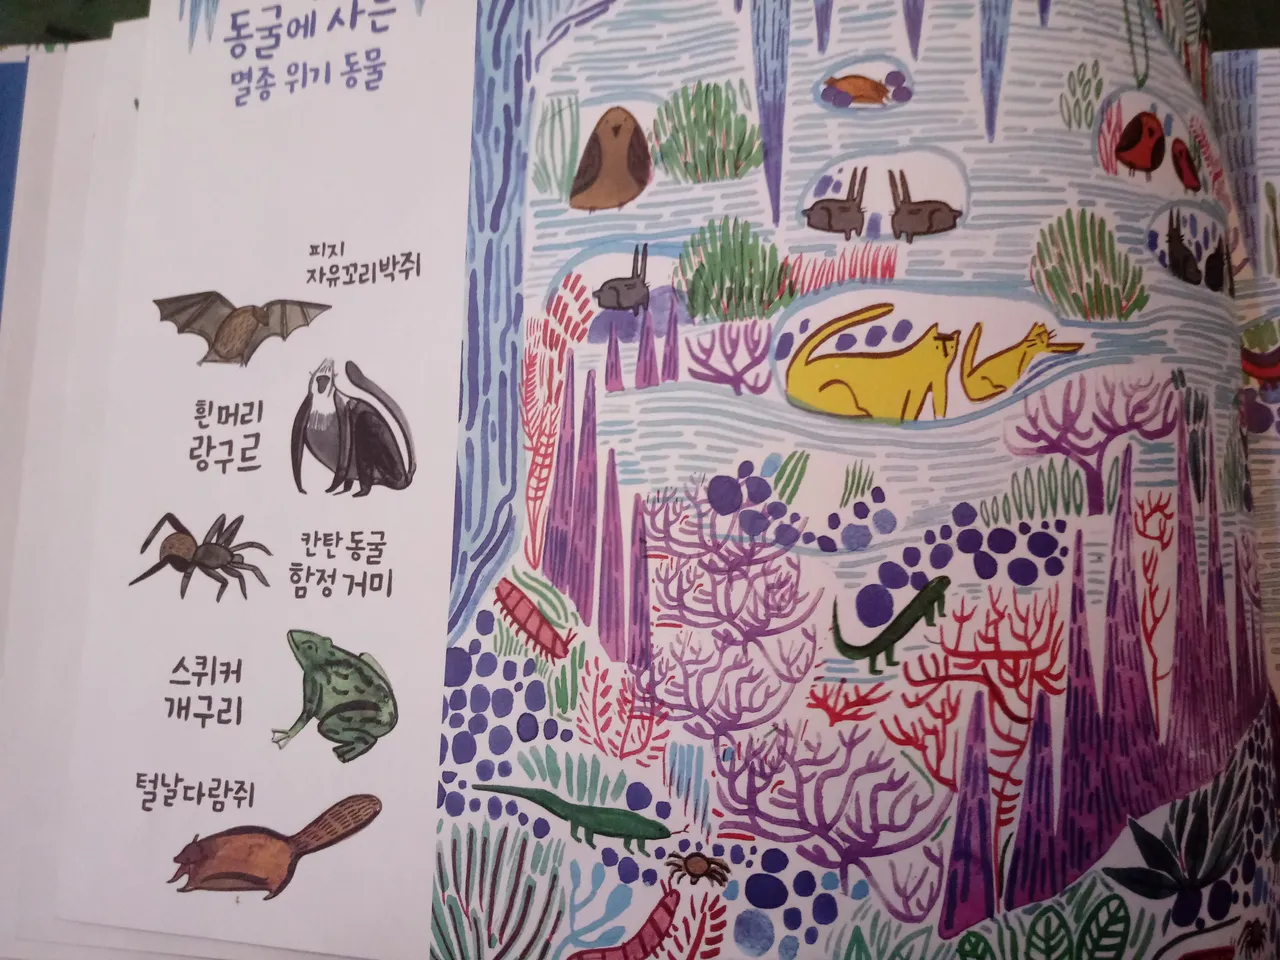 동굴에 사는
멸종 위기 동물
피지
자유꼬리박쥐
흰머리
랑구르
칸탄 동굴
함정 거미
스퀴커
개구리
털날다람쥐